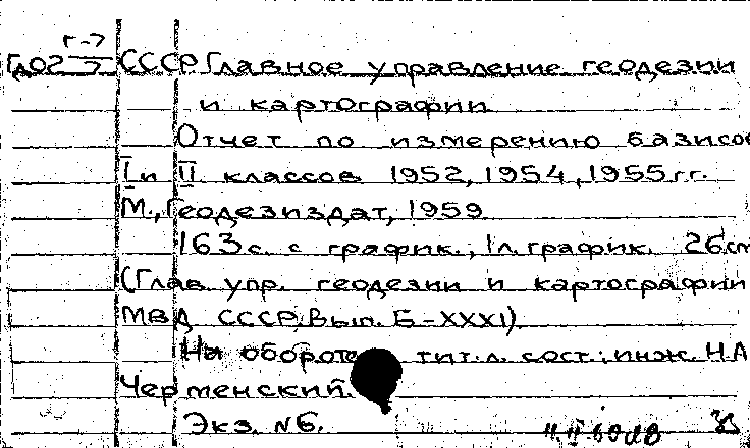 СССР Главное управление геодезии
и картографии
Отчет по измерению базисов
I и II классов 1952, 1954, 1955 гг.
М., Геодезиздат, 1959
163 с. с график., 1 л. график. 26 см
(Глав. упр. геодезии и картографии
МВД СССР, Вып. Б-XXXI).
На обороте тит. л. сост.: инж. Н.А.
Чертменский.
Экз. №6.